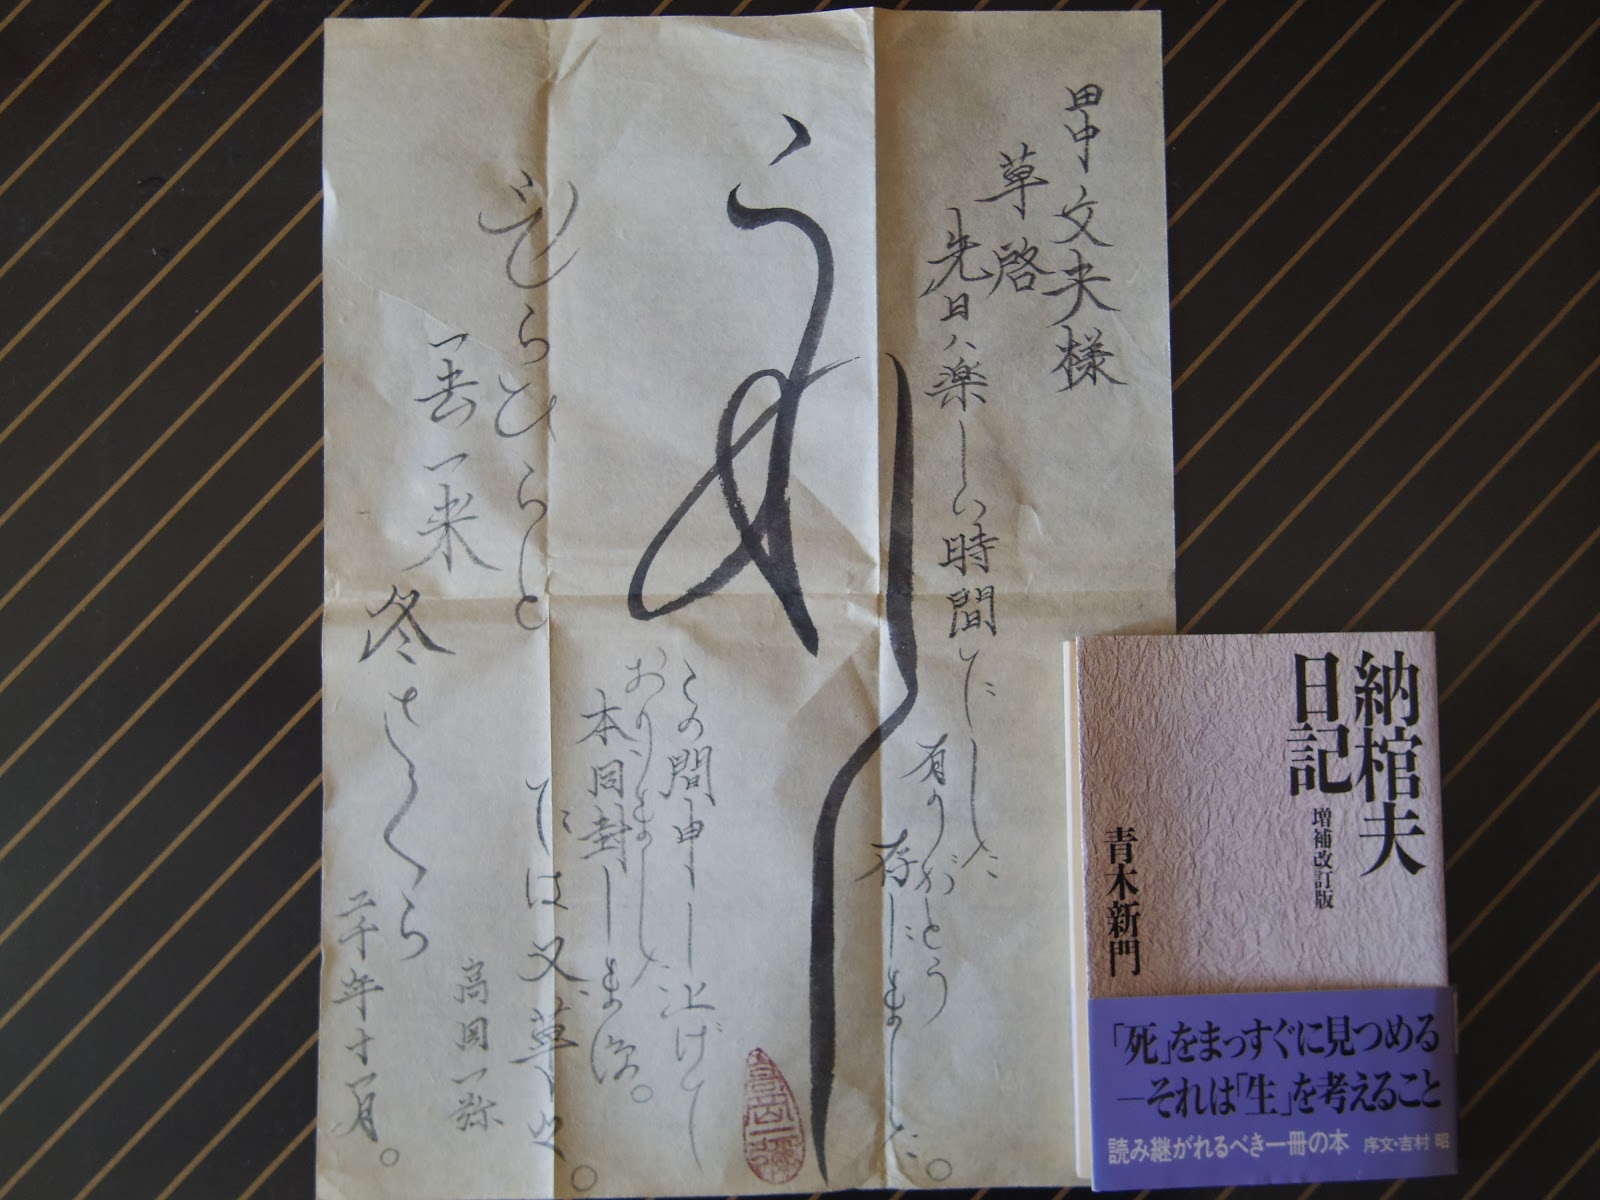 田中文夫様
草啓
先日ハ楽しい時間でした
有りがとう
存じました。
この間申し上げて
おりました
本同封します。
では又
ひらひらと
一去一来
冬さくら
高岡一弥
二千年十一月。
納棺夫
日記
増補改訂版
青木新門
「死」をまっすぐに見つめる
―それは「生」を考えること
読み継がれるべき一冊の本 序文・吉村 昭